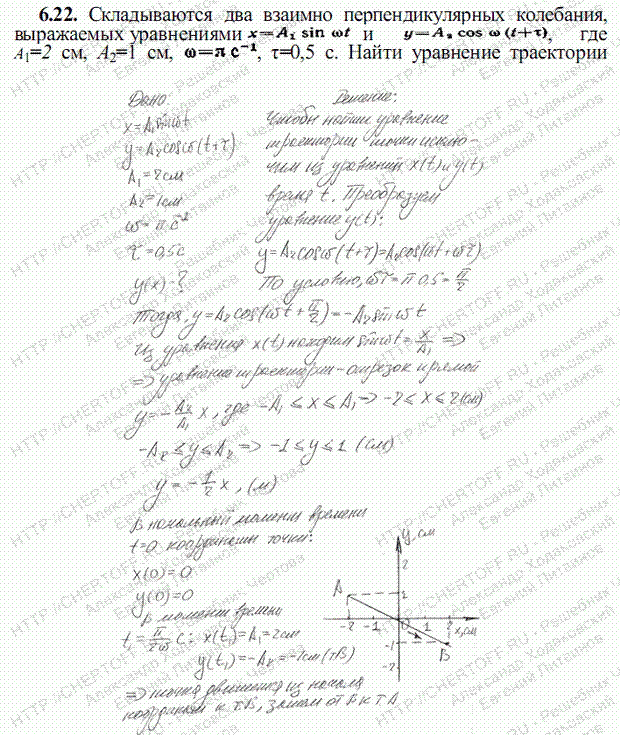 6.22. Складываются два взаимно перпендикулярных колебания,
выражаемых уравнениями x=A₁ sin ωt и y=A₂ cos ω (t+τ), где
A₁=2 см, A₂=1 см, ω=π с⁻¹, τ=0,5 с. Найти уравнение траектории
Дано:
x=A₁sinωt
y=A₂cosω(t+τ)
A₁=2см
A₂=1см
ω=π с⁻¹
τ=0,5с
y(x)-?
Решение:
Чтобы найти уравнение
траектории точки исклю-
чим из уравнений x(t) и y(t)
время t. Преобразуем
уравнение y(t):
y=A₂cosω(t+τ)=A₂cos(ωt+ωτ)
По условию, ωτ=π 0.5=π/2
Тогда, y=A₂cos(ωt+π/2)=-A₂sinωt
Из уравнения x(t) находим sinωt=x/A₁ =>
=> уравнение траектории-отрезок прямой
y=-A₂/A₁ x, где -A₁≤x≤A₁=>-2≤x≤2(см)
-A₂≤y≤A₂=>-1≤y≤1 (см)
y=-1/2 x, (м)
В начальный момент времени
t=0 координаты точки:
x(0)=0
y(0)=0
В момент времени
t₁=π/2ω с: x(t₁)=A₁=2см
y(t₁)=-A₂=-1см(тВ)
=> точка движется из начала
координат к т.В, затем от В к т А
y,см
2
A
1
-2 -1 0 1 2 x,см
-1
B
-2
HTTP://CHERTOFF.RU - Решебник Чертова
Александр Ходаковский
Евгений Литвинов